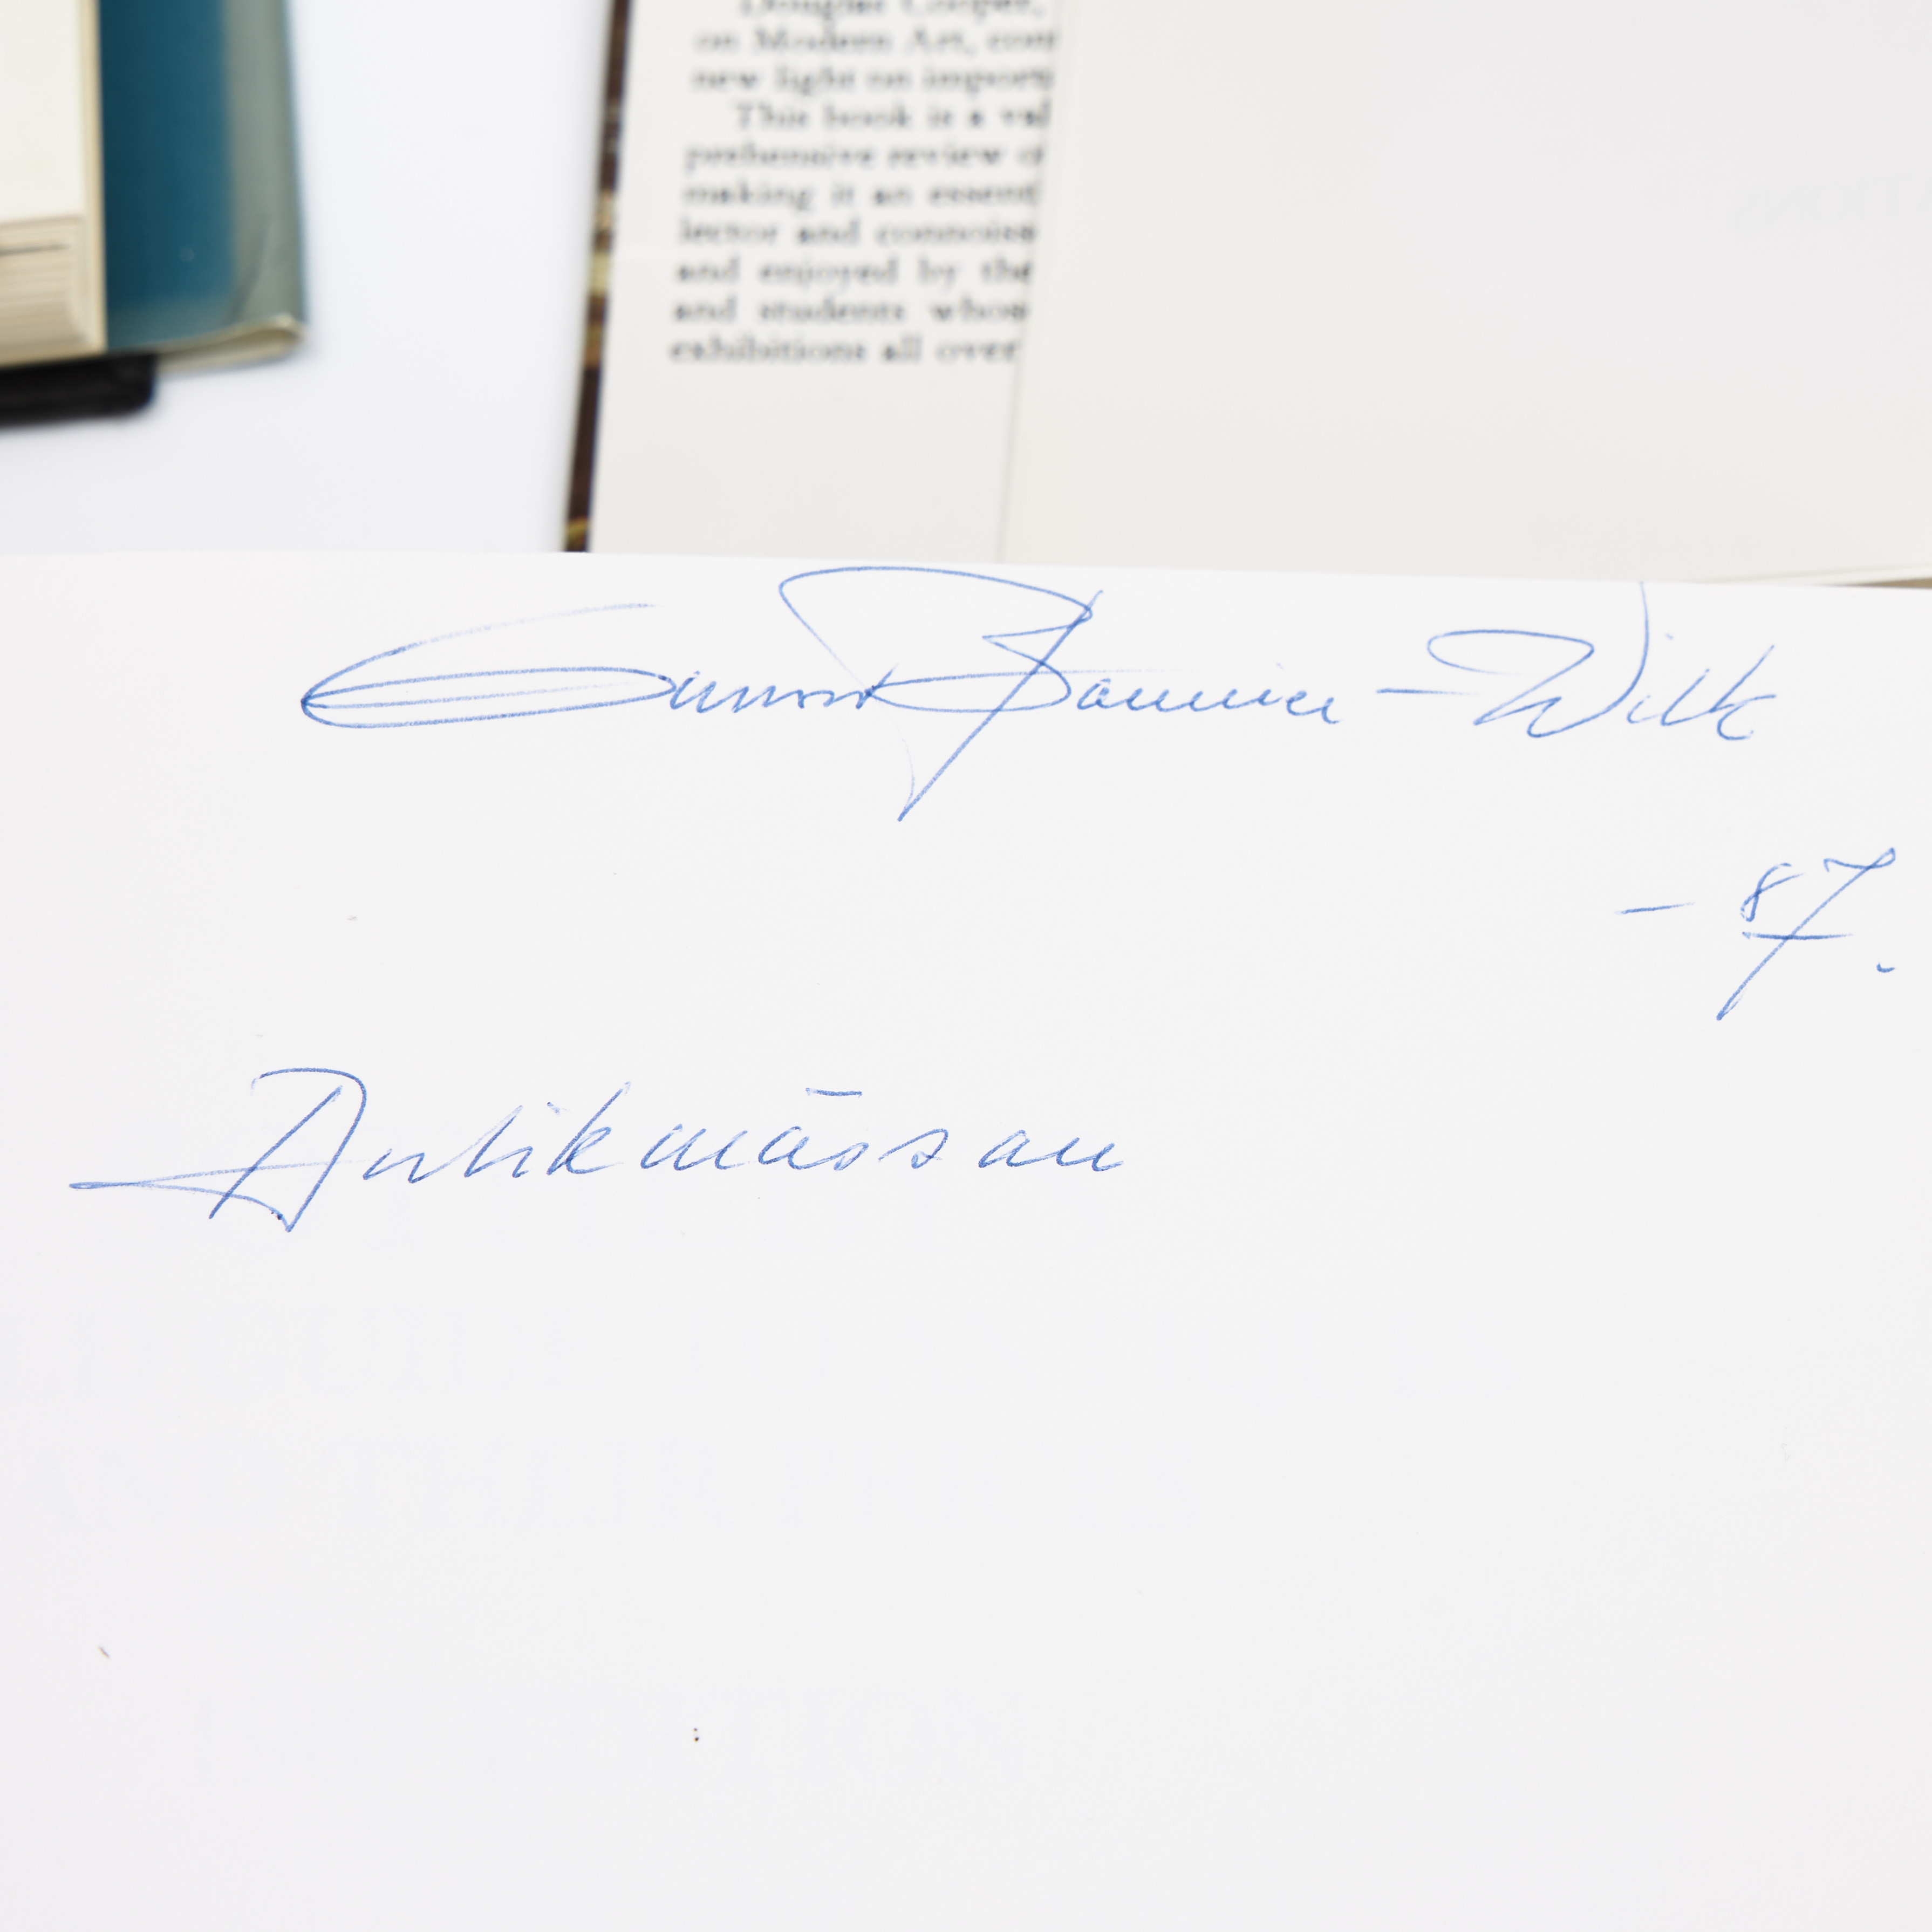 Douglas Cooper,
on Modern Art, con
new light on import
This book is a val
prehensive review o
making it an essent
lector and connoiss
and enjoyed by the
and students whos
exhibitions all over
Wilk
– 87.
Antikmässan